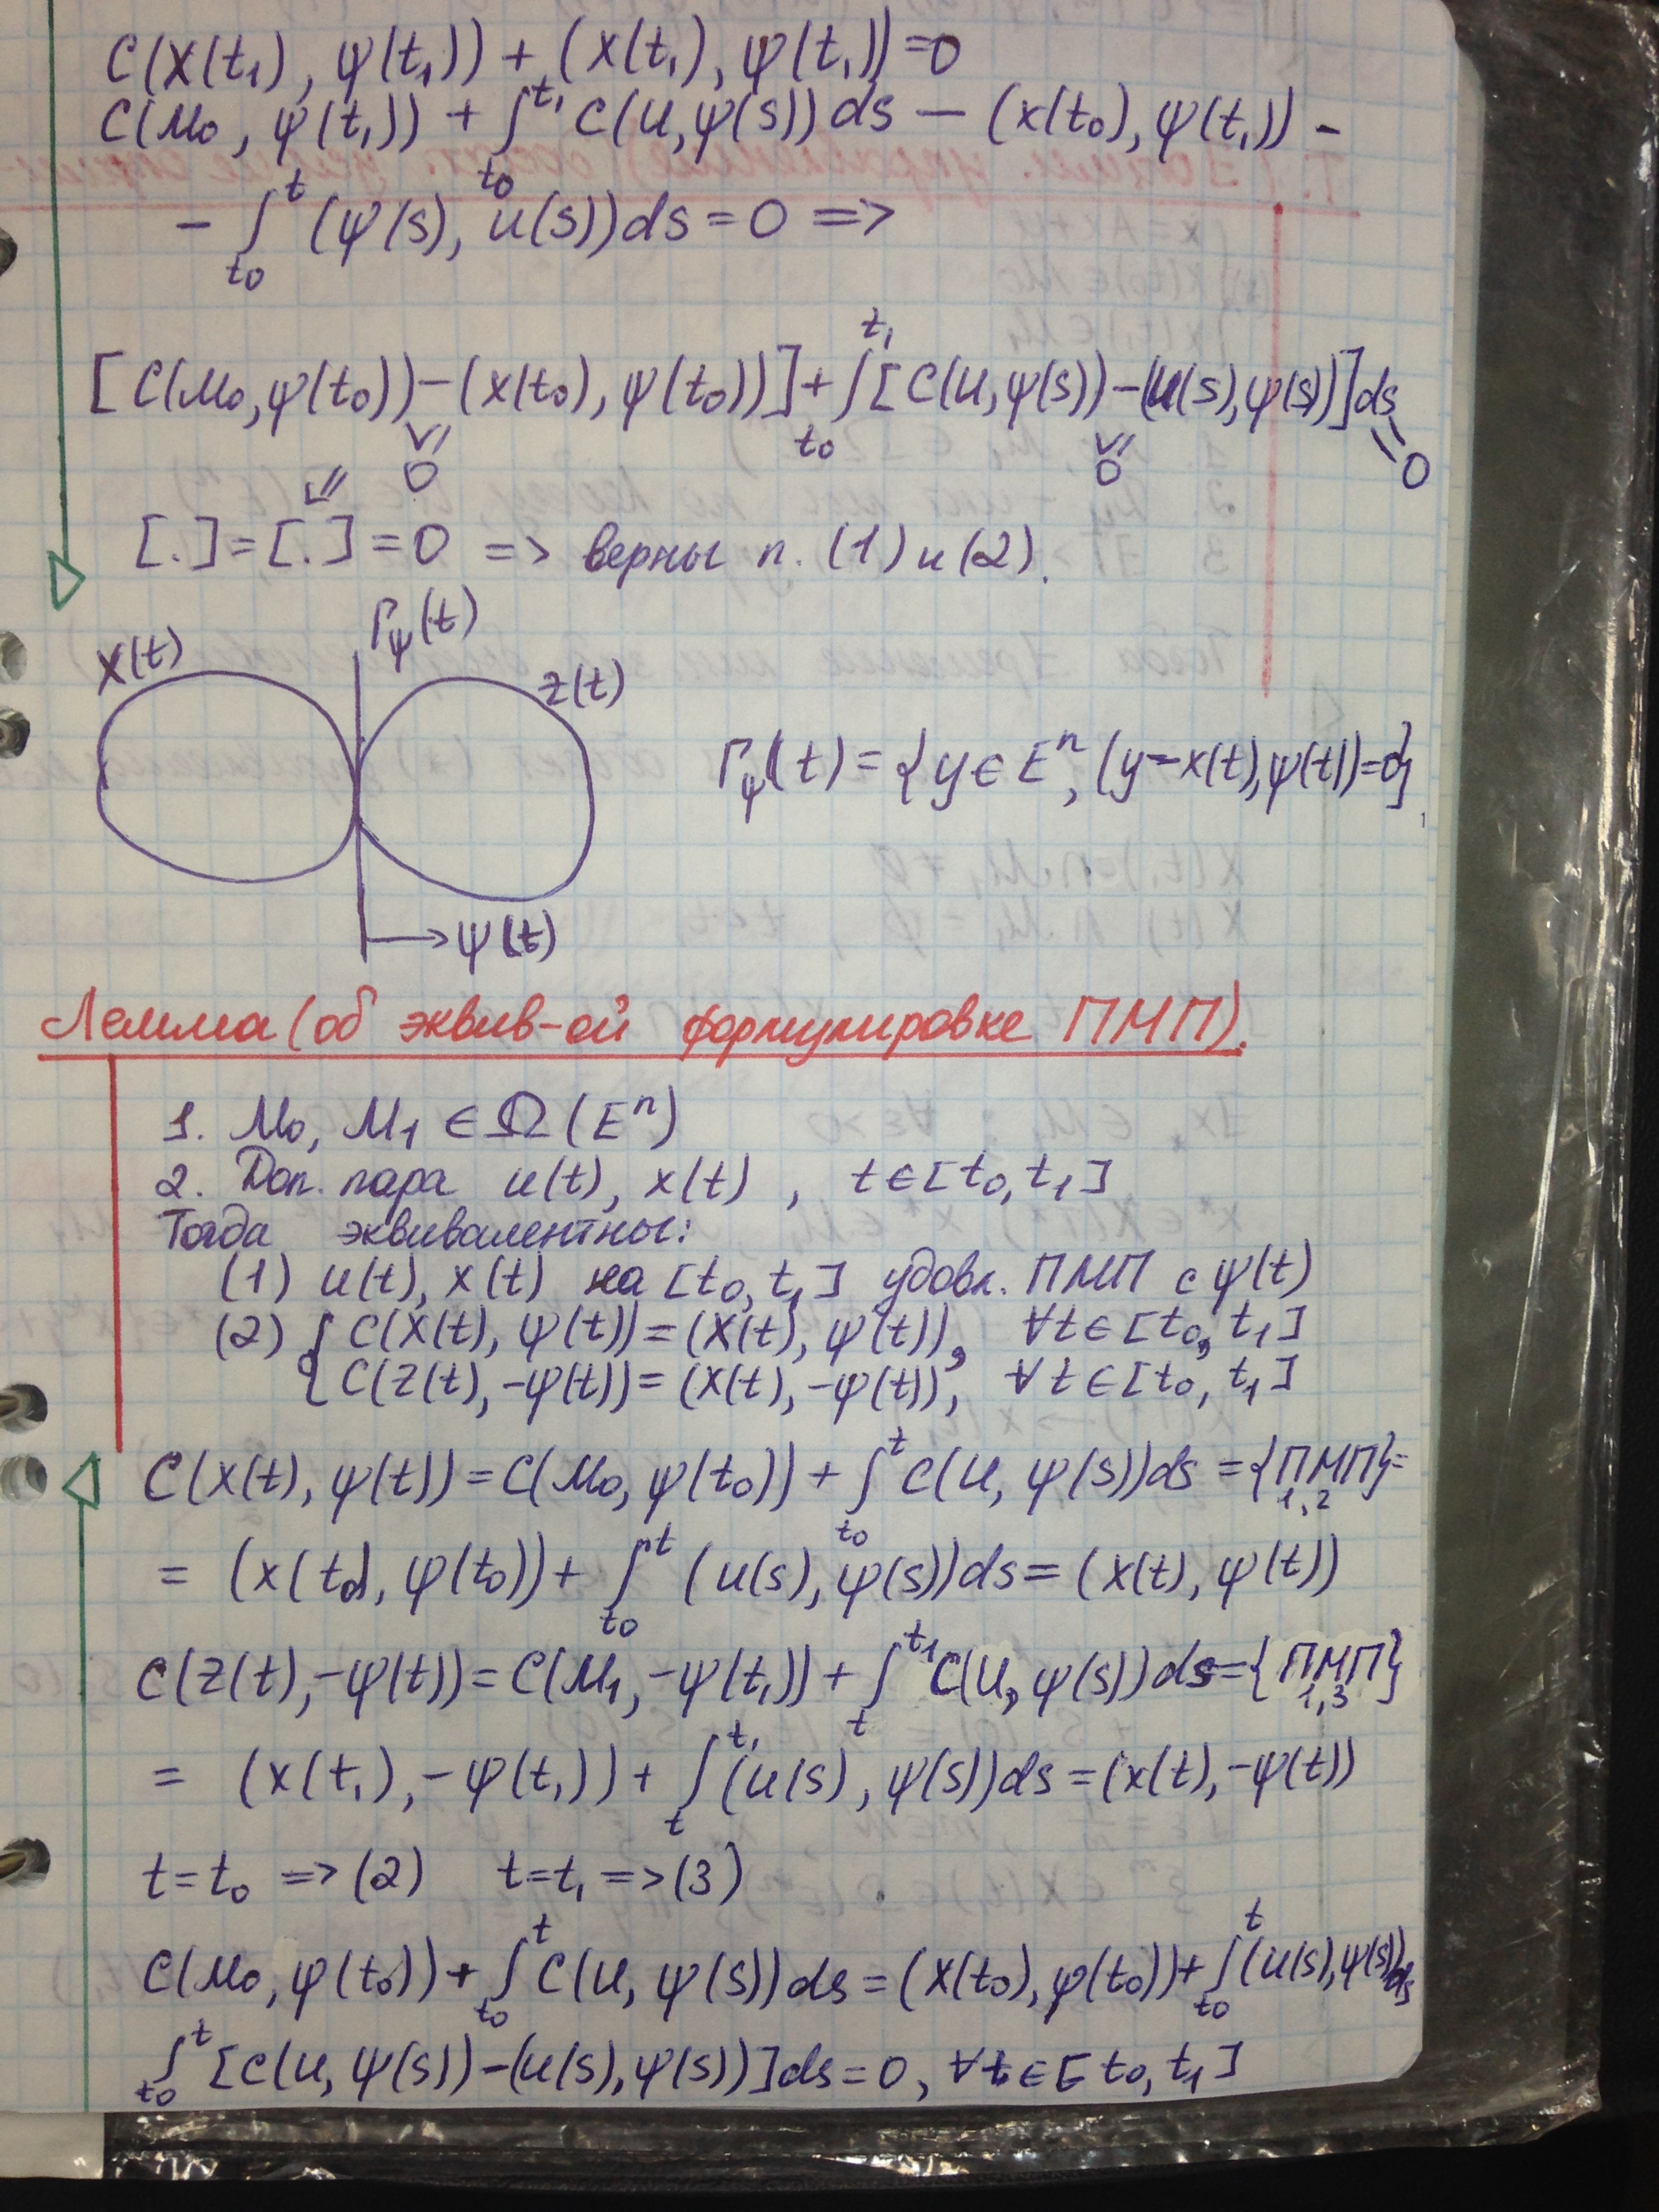 C(X(t₁), ψ(t₁)) + (x(t₁), ψ(t₁)) = 0
C(M₀, ψ(t₁)) + ∫_{t₀}^{t₁} C(U, ψ(s)) ds − (x(t₀), ψ(t₁)) −
− ∫_{t₀}^{t} (ψ(s), u(s)) ds = 0 =>
[C(M₀, ψ(t₀)) − (x(t₀), ψ(t₀))] + ∫_{t₀}^{t₁} [C(U, ψ(s)) − (u(s), ψ(s))] ds = 0
≥ 0 ≥ 0
[.] = [.] = 0 => верны п. (1) и (2).
X(t) Γ_ψ(t) Z(t)
Γ_ψ(t) = {y ∈ Eⁿ, (y − x(t), ψ(t)) = 0}
ψ(t)
Лемма (об эквив-ой формулировке ПМП).
1. M₀, M₁ ∈ Ω(Eⁿ)
2. Доп. пара u(t), x(t), t ∈ [t₀, t₁]
Тогда эквивалентны:
(1) u(t), x(t) на [t₀, t₁] удовл. ПМП с ψ(t)
(2) { C(X(t), ψ(t)) = (x(t), ψ(t)), ∀t ∈ [t₀, t₁]
{ C(Z(t), −ψ(t)) = (x(t), −ψ(t)), ∀t ∈ [t₀, t₁]
C(X(t), ψ(t)) = C(M₀, ψ(t₀)) + ∫_{t₀}^{t} C(U, ψ(s)) ds = {ПМП 1,2} =
= (x(t₀), ψ(t₀)) + ∫_{t₀}^{t} (u(s), ψ(s)) ds = (x(t), ψ(t))
C(Z(t), −ψ(t)) = C(M₁, −ψ(t₁)) + ∫_{t}^{t₁} C(U, ψ(s)) ds = {ПМП 1,3}
= (x(t₁), −ψ(t₁)) + ∫_{t}^{t₁} (u(s), ψ(s)) ds = (x(t), −ψ(t))
t = t₀ => (2) t = t₁ => (3)
C(M₀, ψ(t₀)) + ∫_{t₀}^{t} C(U, ψ(s)) ds = (x(t₀), ψ(t₀)) + ∫_{t₀}^{t} (u(s), ψ(s)) ds
∫_{t₀}^{t} [C(U, ψ(s)) − (u(s), ψ(s))] ds = 0, ∀t ∈ [t₀, t₁]